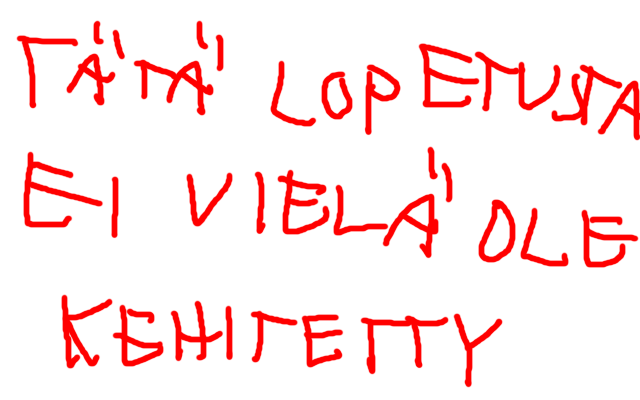 TÄTÄ LOPETUSTA
EI VIELÄ OLE
KEHITETTY